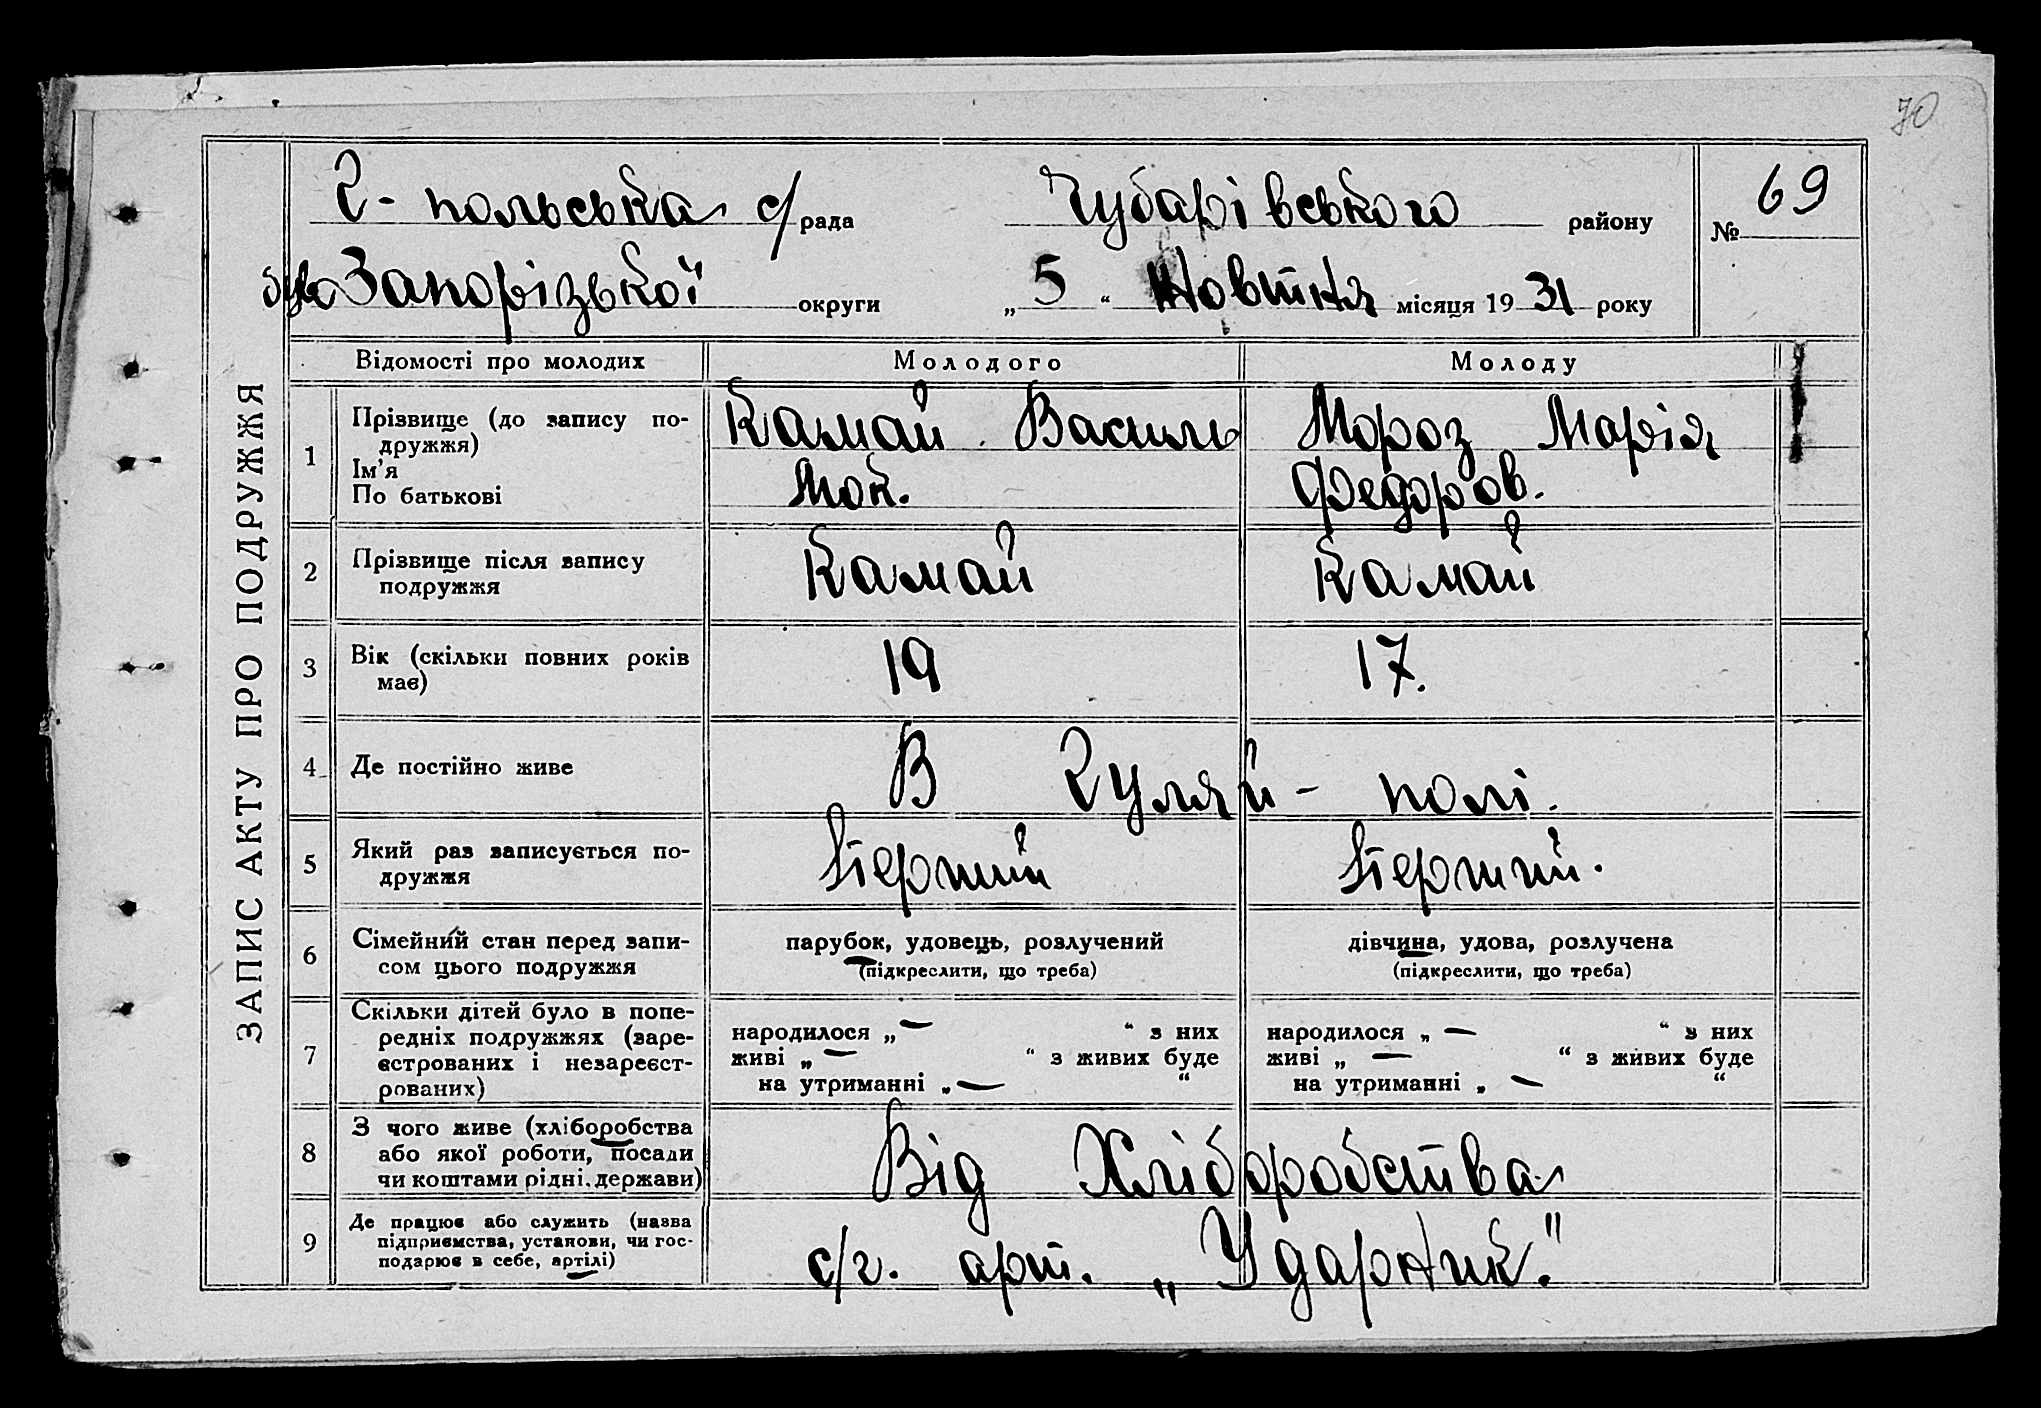 70
Г-польська с/рада Чубарівського району № 69
був Запорізької округи „5“ Жовтня місяця 1931 року
ЗАПИС АКТУ ПРО ПОДРУЖЖЯ
Відомості про молодих Молодого Молоду
1 Прізвище (до запису по-
дружжя)
Ім'я
По батькові
Камай Василь
Мок.
Мороз Марія
Федоров.
2 Прізвище після запису
подружжя
Камай Камай
3 Вік (скільки повних років
має)
19 17.
4 Де постійно живе В Гуляй-полі.
5 Який раз записується по-
дружжя
Перший Перший.
6 Сімейний стан перед запи-
сом цього подружжя
парубок, удовець, розлучений
(підкреслити, що треба)
дівчина, удова, розлучена
(підкреслити, що треба)
7 Скільки дітей було в попе-
редніх подружжях (заре-
єстрованих і незареєст-
рованих)
народилося „— “ з них
живі „— “ з живих буде
на утриманні „— “
народилося „— “ з них
живі „— “ з живих буде
на утриманні „— “
8 З чого живе (хліборобства
або якої роботи, посади
чи коштами рідні, держави)
Від Хліборобства
9 Де працює або служить (назва
підприємства, установи, чи гос-
подарює в себе, артілі)
с/г. арт. „Ударник."